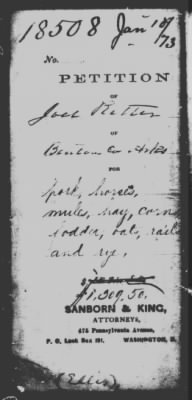 18508 Jan 10/73
No.
PETITION
OF
Joel Rutter
OF
Benton Co Arks
FOR
pork, horses,
mules, hay, corn
fodder, oats, rails
and rye,
$1,309.50.
SANBORN & KING,
ATTORNEYS,
475 Pennsylvania Avenue,
P. O. Lock Box 191. WASHINGTON, D.